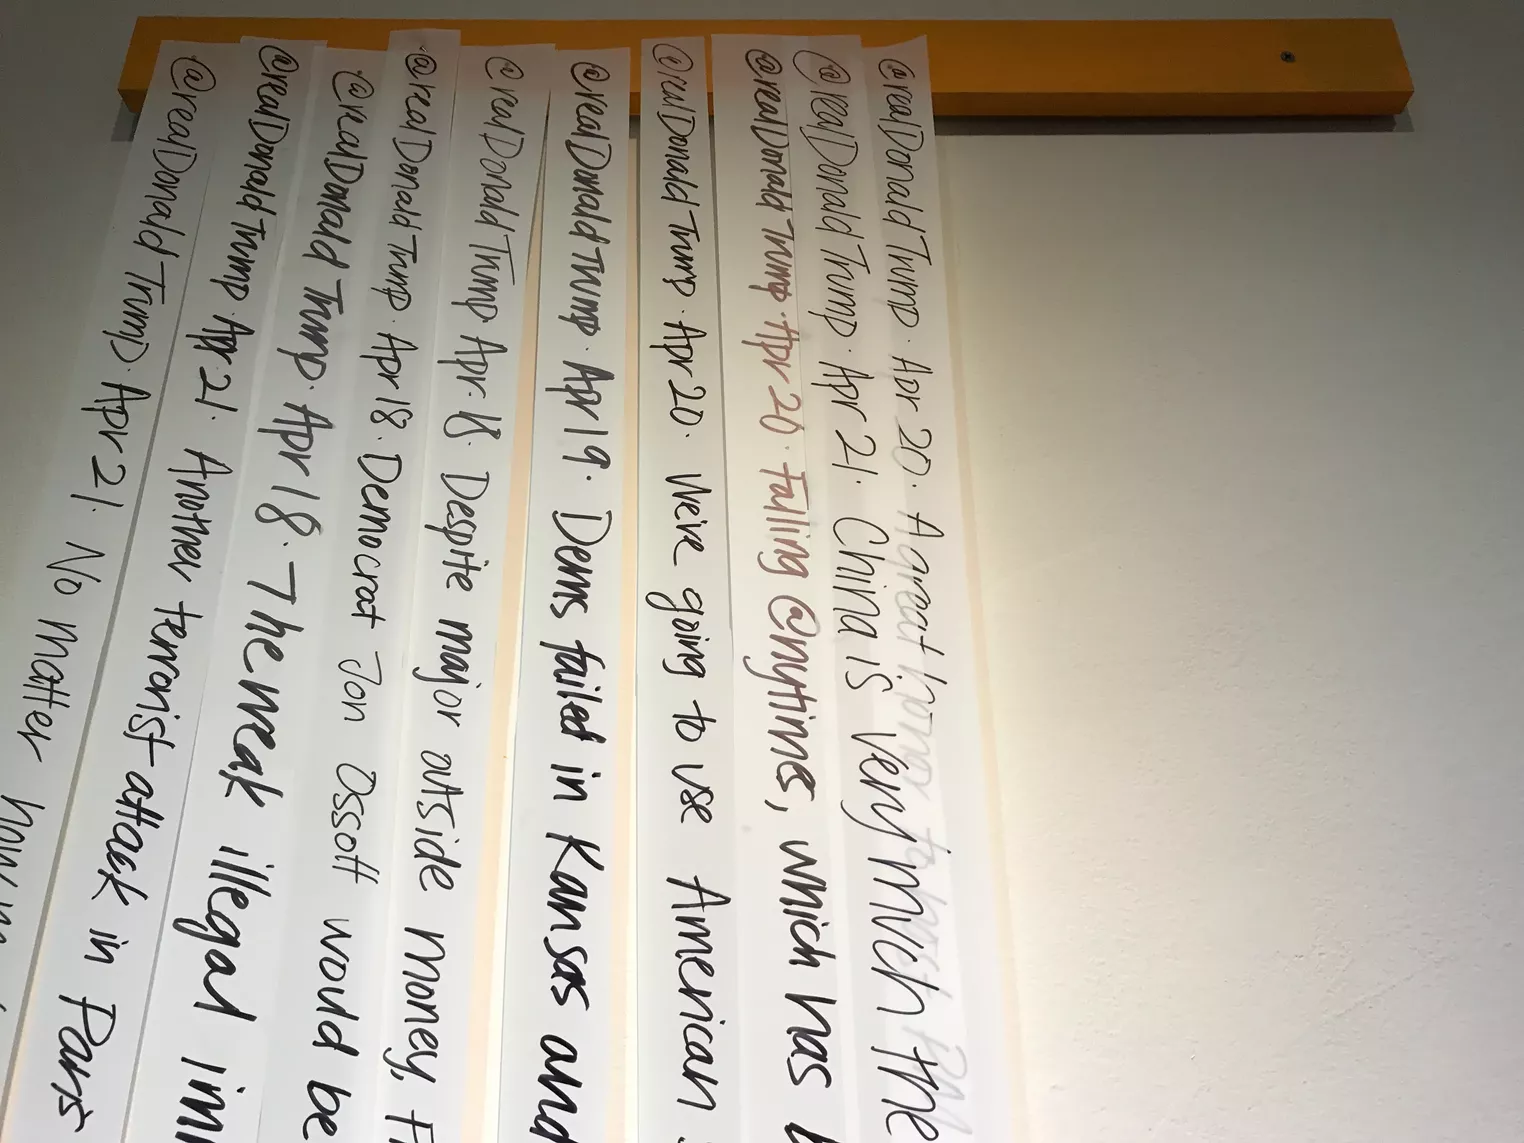 @realDonaldTrump · Apr 21. No matter how
@realDonaldTrump · Apr 21. Another terrorist attack in Paris
@realDonaldTrump · Apr 18. The weak illegal imm
@realDonaldTrump · Apr 18. Democrat Jon Ossoff would be
@realDonaldTrump · Apr 18. Despite major outside money, F
@realDonaldTrump · Apr 19. Dems failed in Kansas and
@realDonaldTrump · Apr 20. We're going to use American
@realDonaldTrump · Apr 20. Failing @nytimes, which has
@realDonaldTrump · Apr 21. China is very much the
@realDonaldTrump · Apr 20. A great honor to host